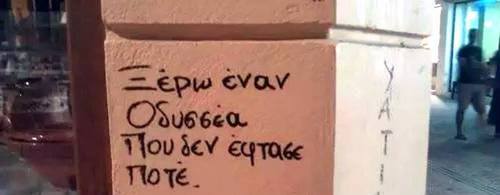 Ξέρω έναν
Οδυσσέα
Που δεν έφτασε
ποτέ.
ΧΑΤΙ